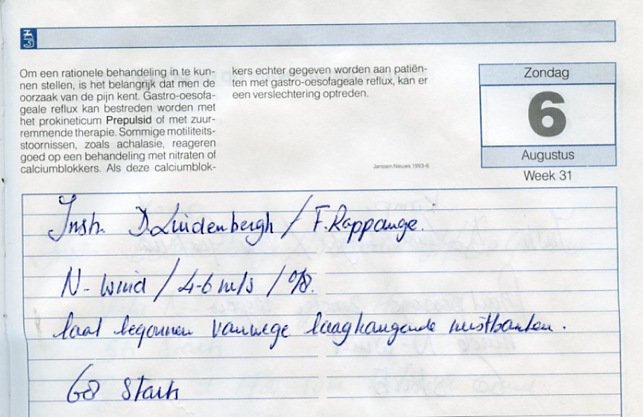 Om een rationele behandeling in te kun-
nen stellen, is het belangrijk dat men de
oorzaak van de pijn kent. Gastro-oesofa-
geale reflux kan bestreden worden met
het prokineticum Prepulsid of met zuur-
remmende therapie. Sommige motiliteits-
stoornissen, zoals achalasie, reageren
goed op een behandeling met nitraten of
calciumblokkers. Als deze calciumblok-
kers echter gegeven worden aan patiën-
ten met gastro-oesofageale reflux, kan er
een verslechtering optreden.
Janssen Nieuws 1993-6
Zondag
6
Augustus
Week 31
Instr. D. Lindenbergh / F. Rappange.
N-wind / 4-6 m/s /
laat begonnen vanwege laaghangende mistbanken.
68 Starts